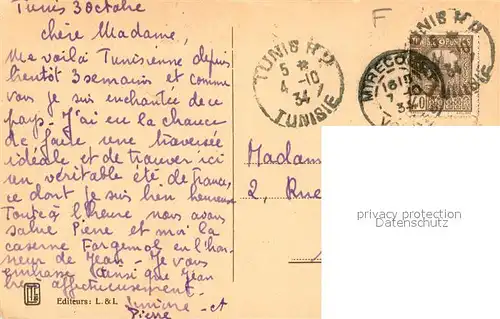 Tunis 3 octobre
chère Madame,
Me voilà Tunisienne depuis
bientôt 3 semaines et comme
vous je suis enchantée de ce
pays. J'ai eu la chance
de faire une traversée
idéale et de trouver ici
un véritable été de France,
ce dont je suis bien heureuse
Tout à l'heure nous avons
salué Pierre et moi la
caserne Forgemol en l'hon-
neur de Jean - Je vous
embrasse ainsi que Jean
très affectueusement.
et
Pierre
Editeurs: L. & L.
F
TUNIS R.P.
5 *
4 -10
34
TUNISIE
MIRECO
16 15
7 -10
TUNIS R.P.
TUNISIE
40
Madam
2, Rue
privacy protection
Datenschutz